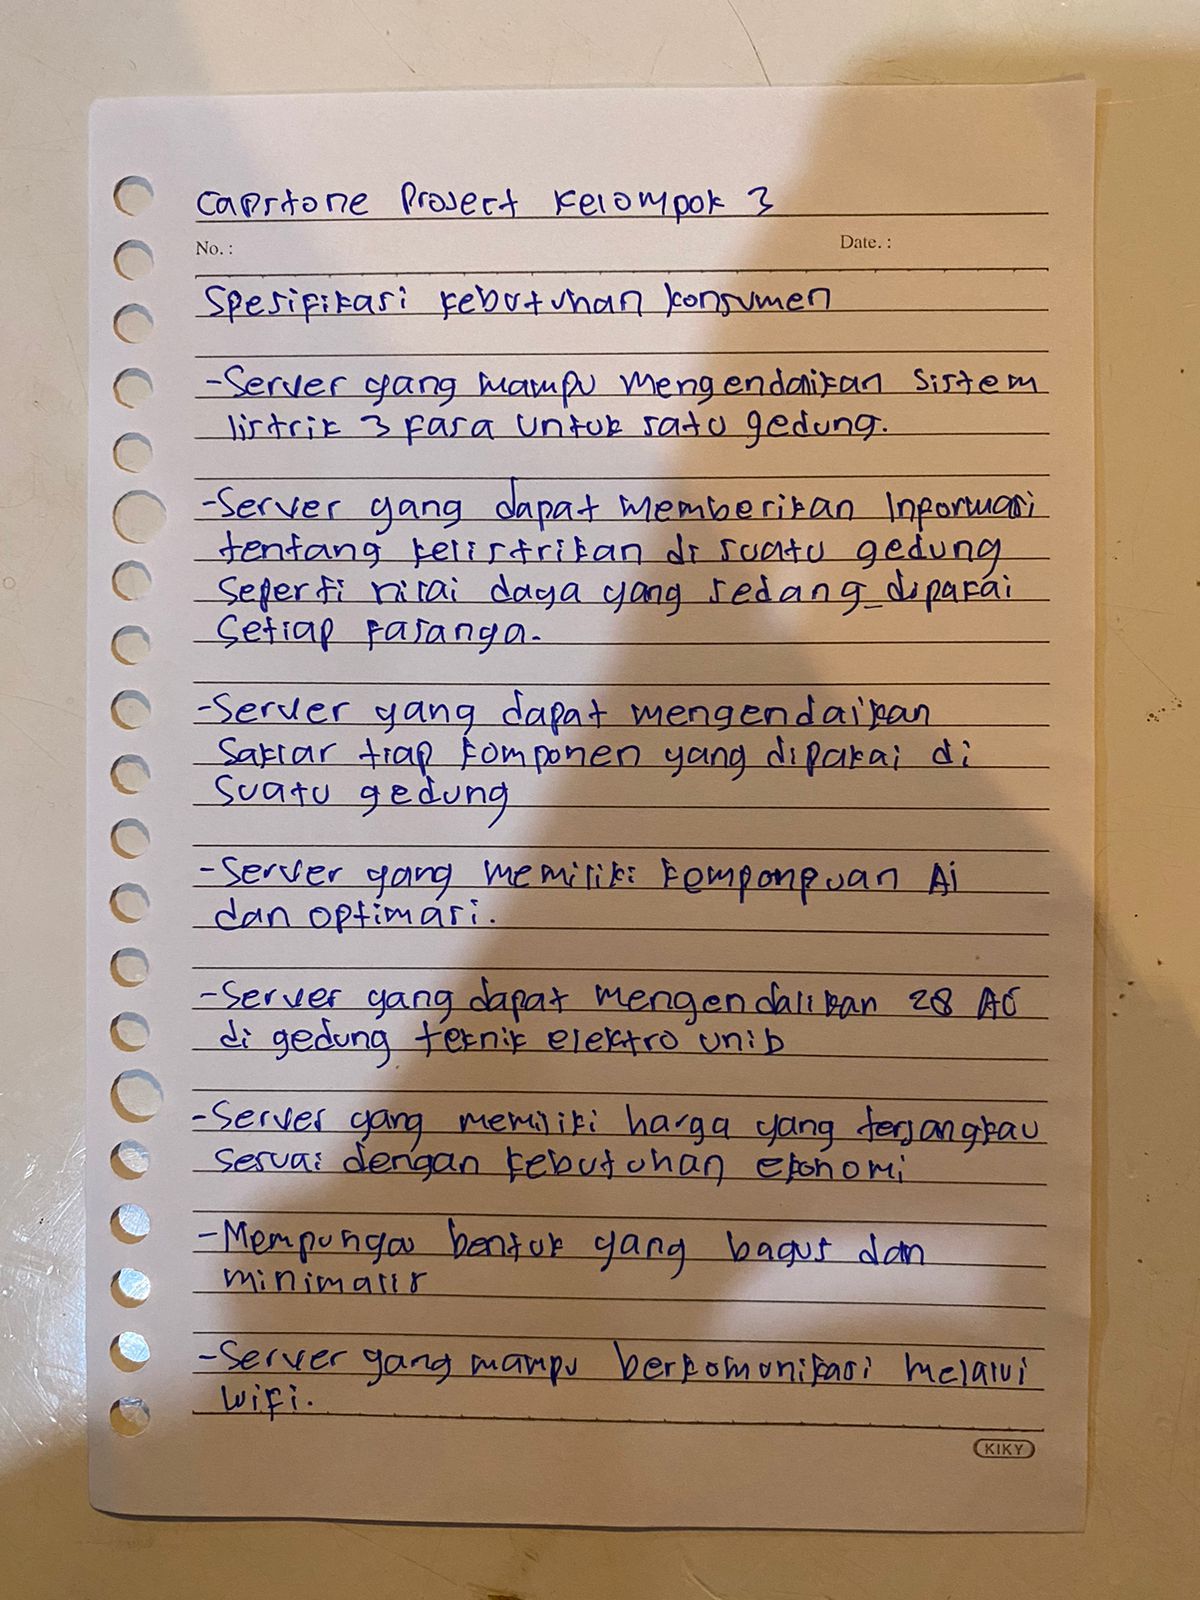 Capstone Project Kelompok 3
No. :
Date. :
Spesifikasi kebutuhan konsumen
-Server yang mampu mengendalikan sistem
listrik 3 fasa untuk satu gedung.
-Server yang dapat memberikan Informasi
tentang kelistrikan di suatu gedung
Seperti nilai daya yang sedang dipakai
Setiap fasanya.
-Server yang dapat mengendalikan
Saklar tiap komponen yang dipakai di
Suatu gedung
-Server yang memiliki kemponpuan Ai
dan optimasi.
-Server yang dapat mengendalikan 28 AC
di gedung teknik elektro unib
-Server yang memiliki harga yang terjangkau
Sesuai dengan kebutuhan ekonomi
-Mempunya bentuk yang bagus dan
minimalis
-Server yang mampu berkomunikasi melalui
wifi.
KIKY